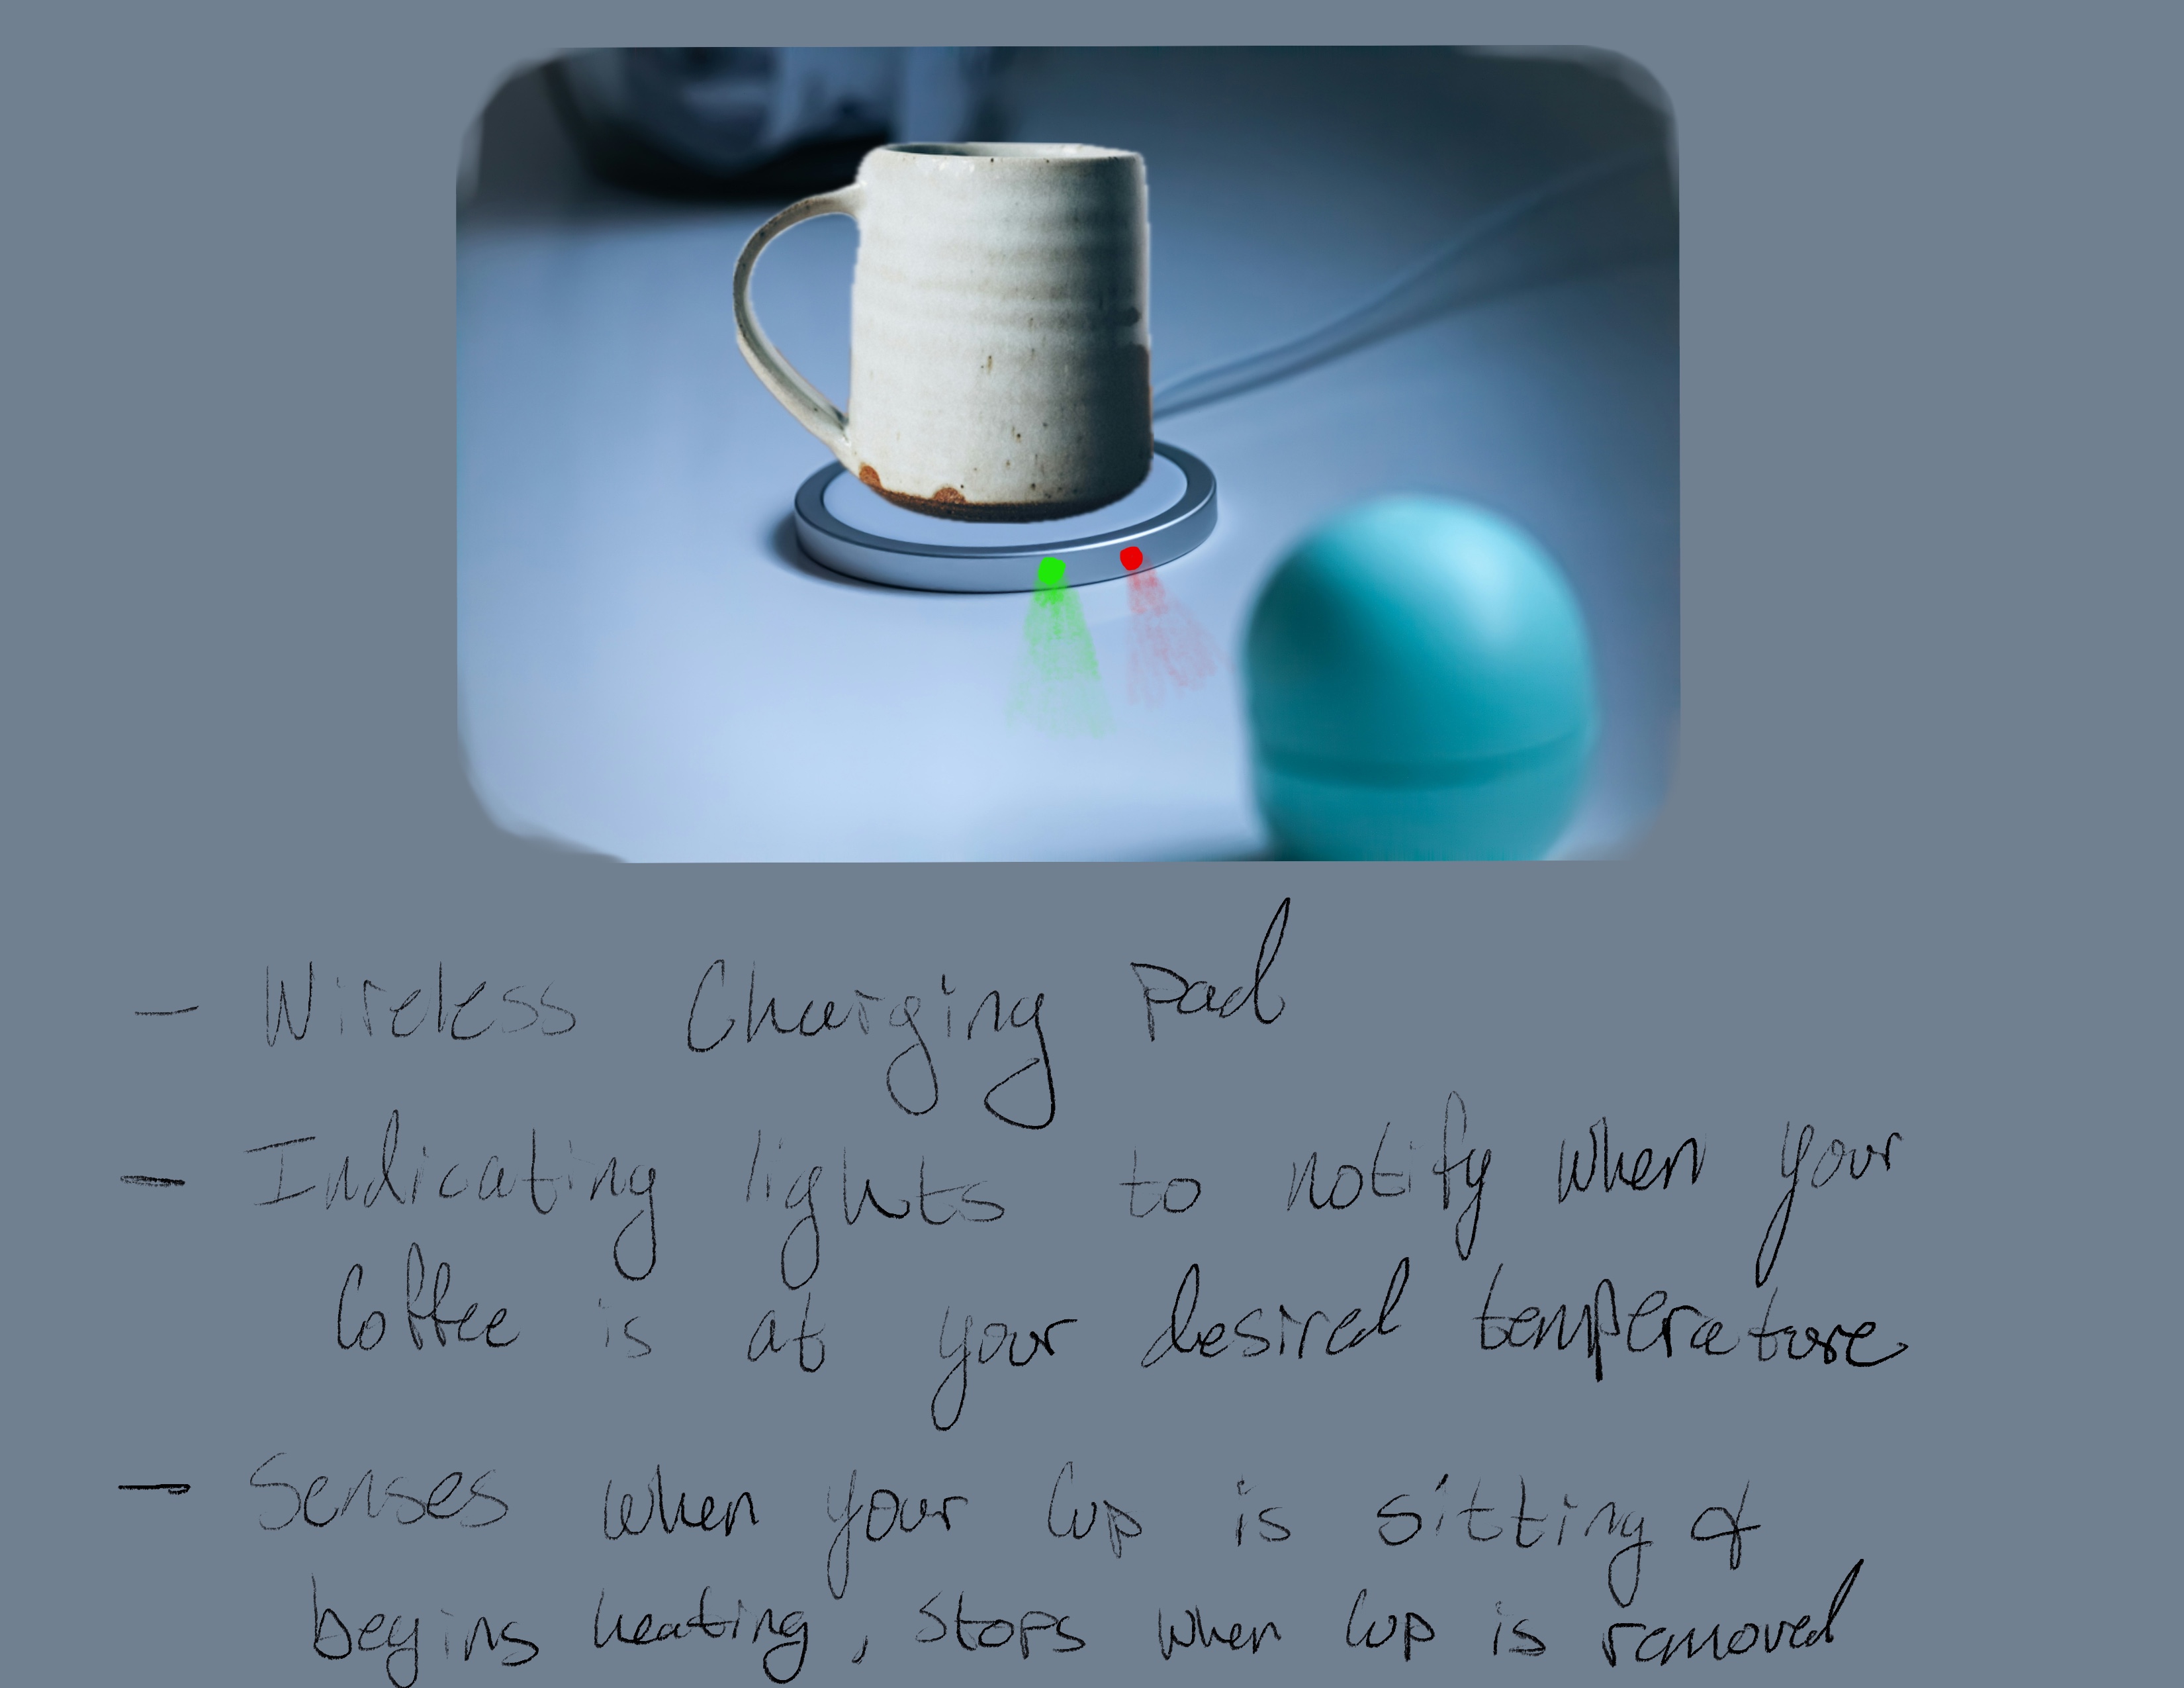 - Wireless Charging Pad
- Indicating lights to notify when your
Coffee is at your desired temperature
- Senses when your Cup is sitting &
begins heating, stops when Cup is removed